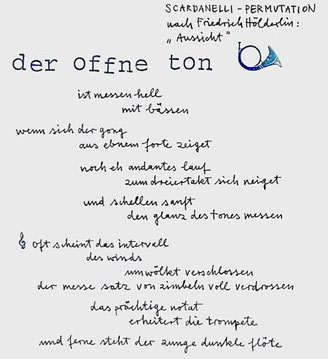 SCARDANELLI - PERMUTATION
nach Friedrich Hölderlin:
„Aussicht"
der offne ton
ist messen hell
mit bässen
wenn sich der gong
aus ebnem forte zeiget
noch eh andantes lauf
zum dreiertakt sich neiget
und schellen sanft
den glanz des tones messen
oft scheint das intervall
des winds
umwölkt verschlossen
der messe satz von zimbeln voll verdrossen
das prächtige notat
erheitert die trompete
und ferne steht der zunge dunkle flöte